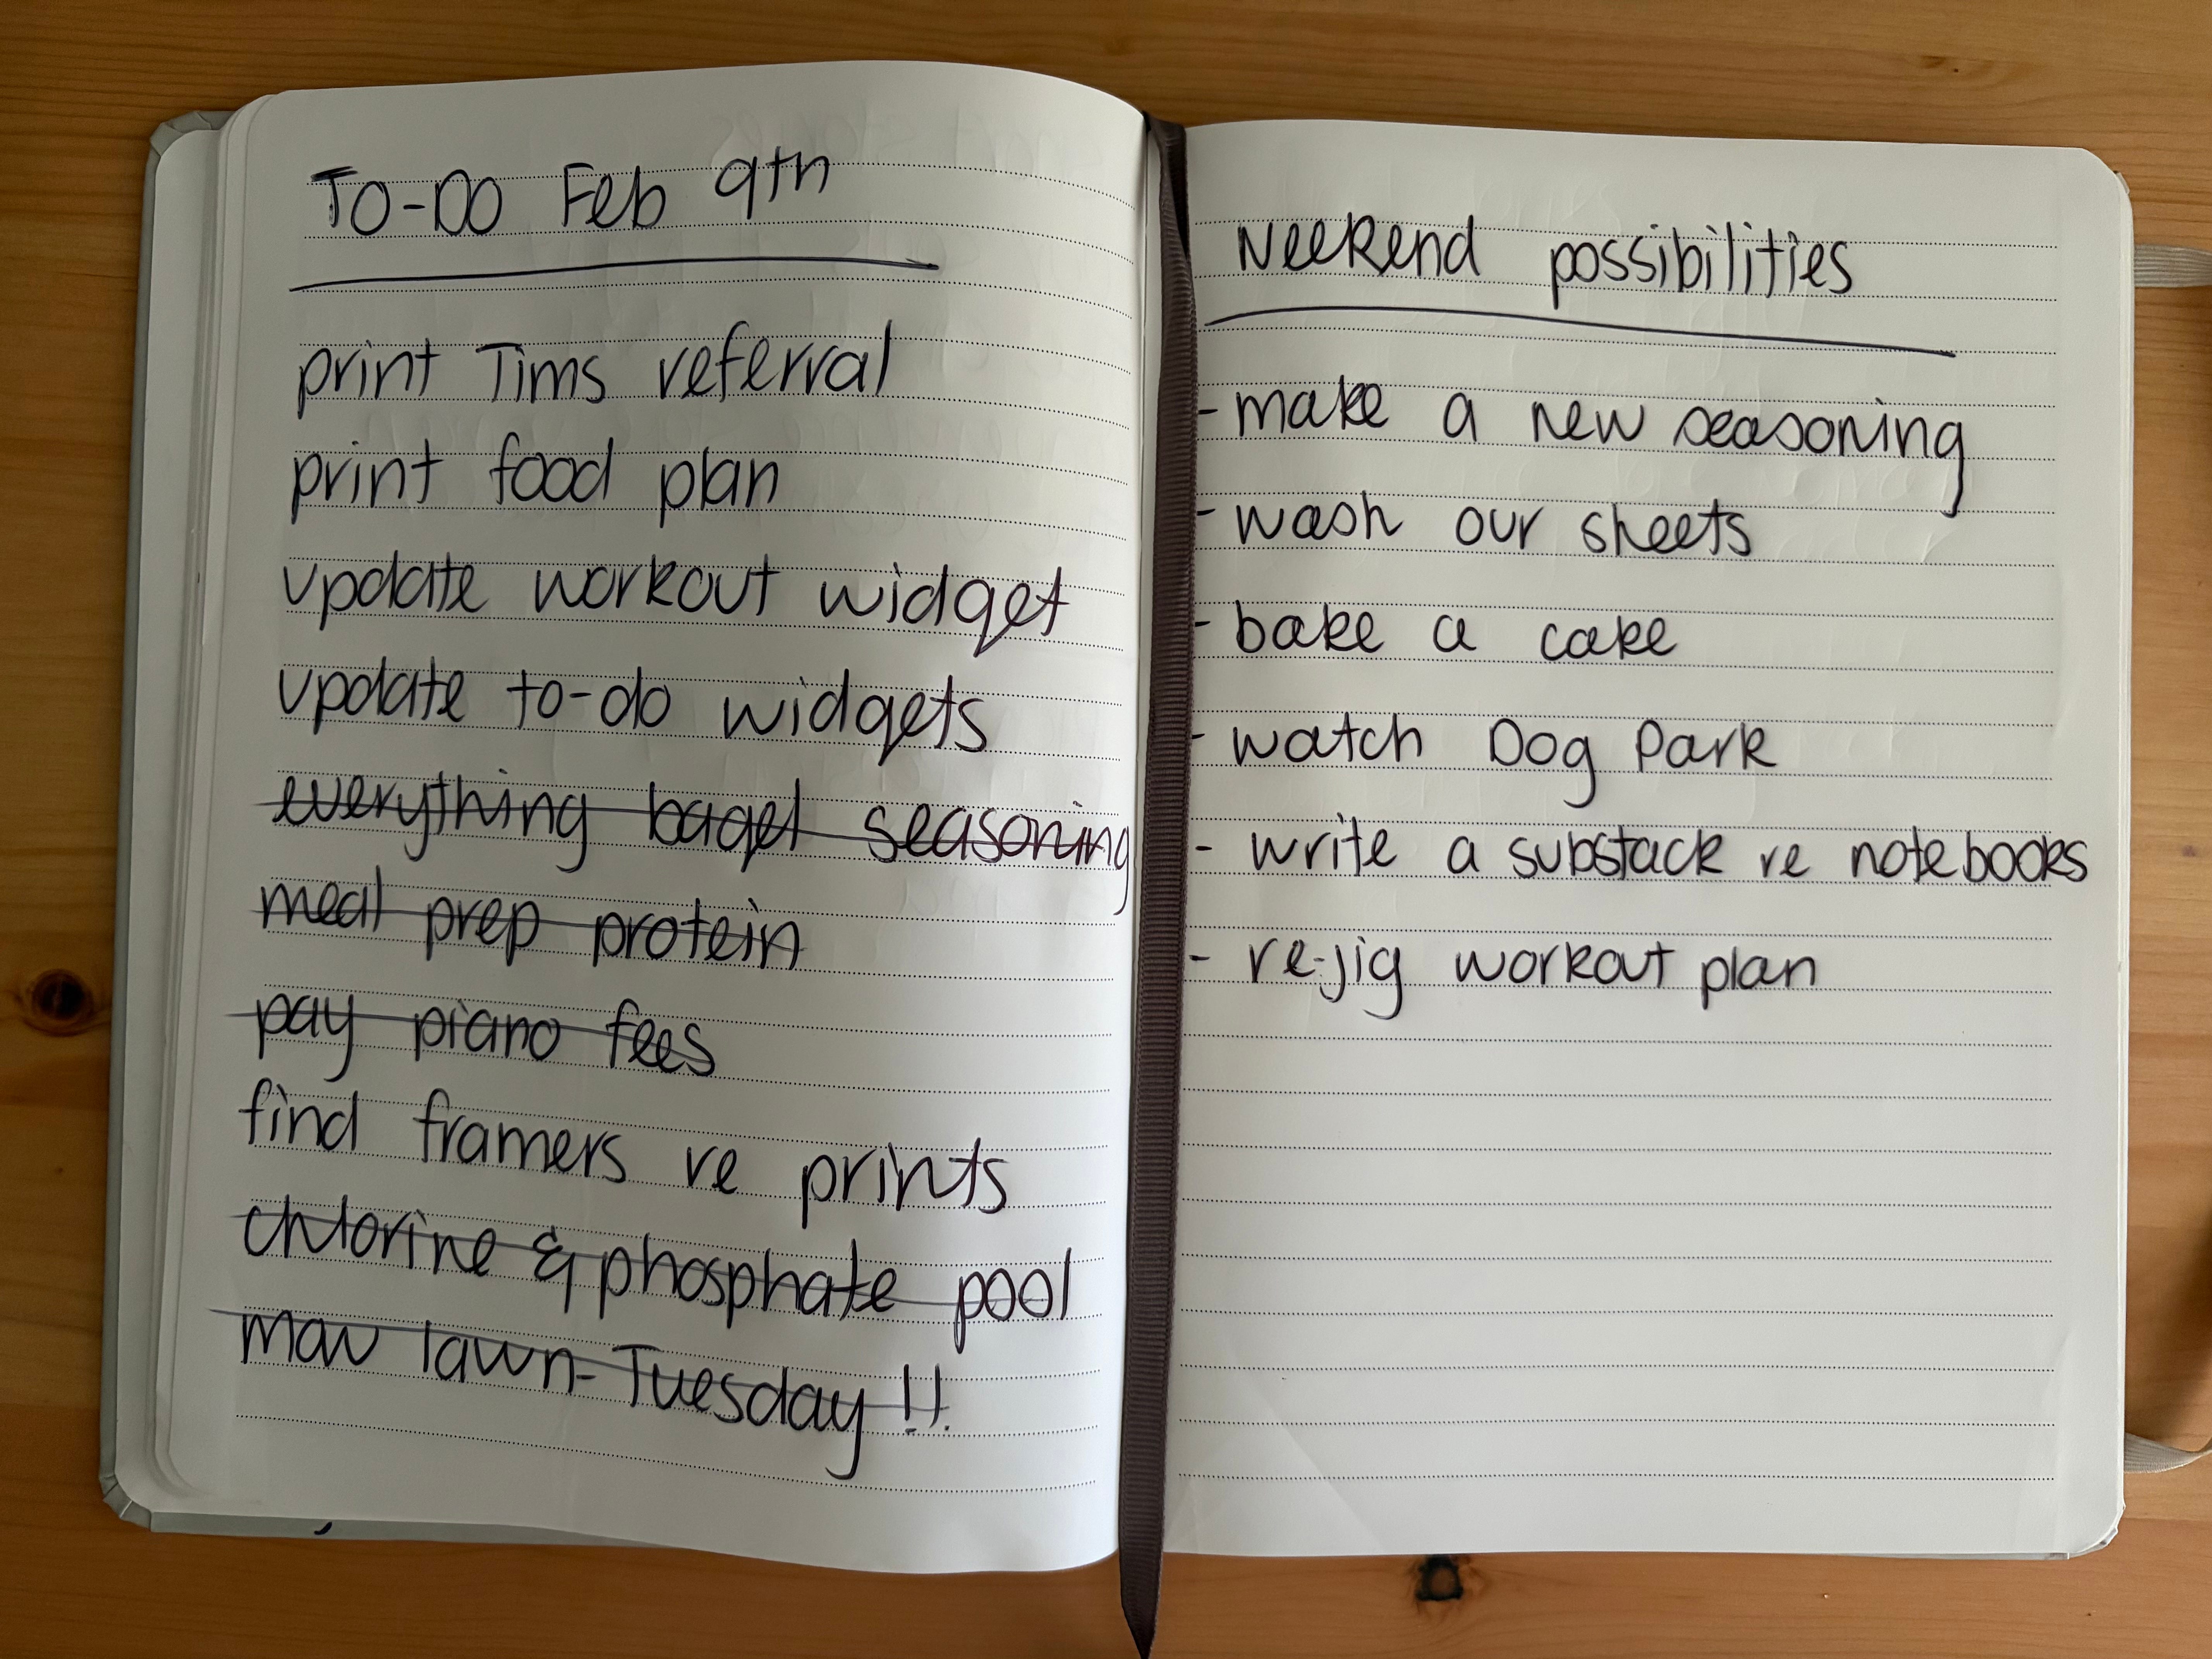 To-Do Feb 9th
print Tims referral
print food plan
update workout widget
update to-do widgets
everything bagel seasoning
meal prep protein
pay piano fees
find framers re prints
chlorine & phosphate pool
mow lawn - Tuesday !!
Weekend possibilities
- make a new seasoning
- wash our sheets
- bake a cake
- watch Dog Park
- write a substack re notebooks
- re-jig workout plan